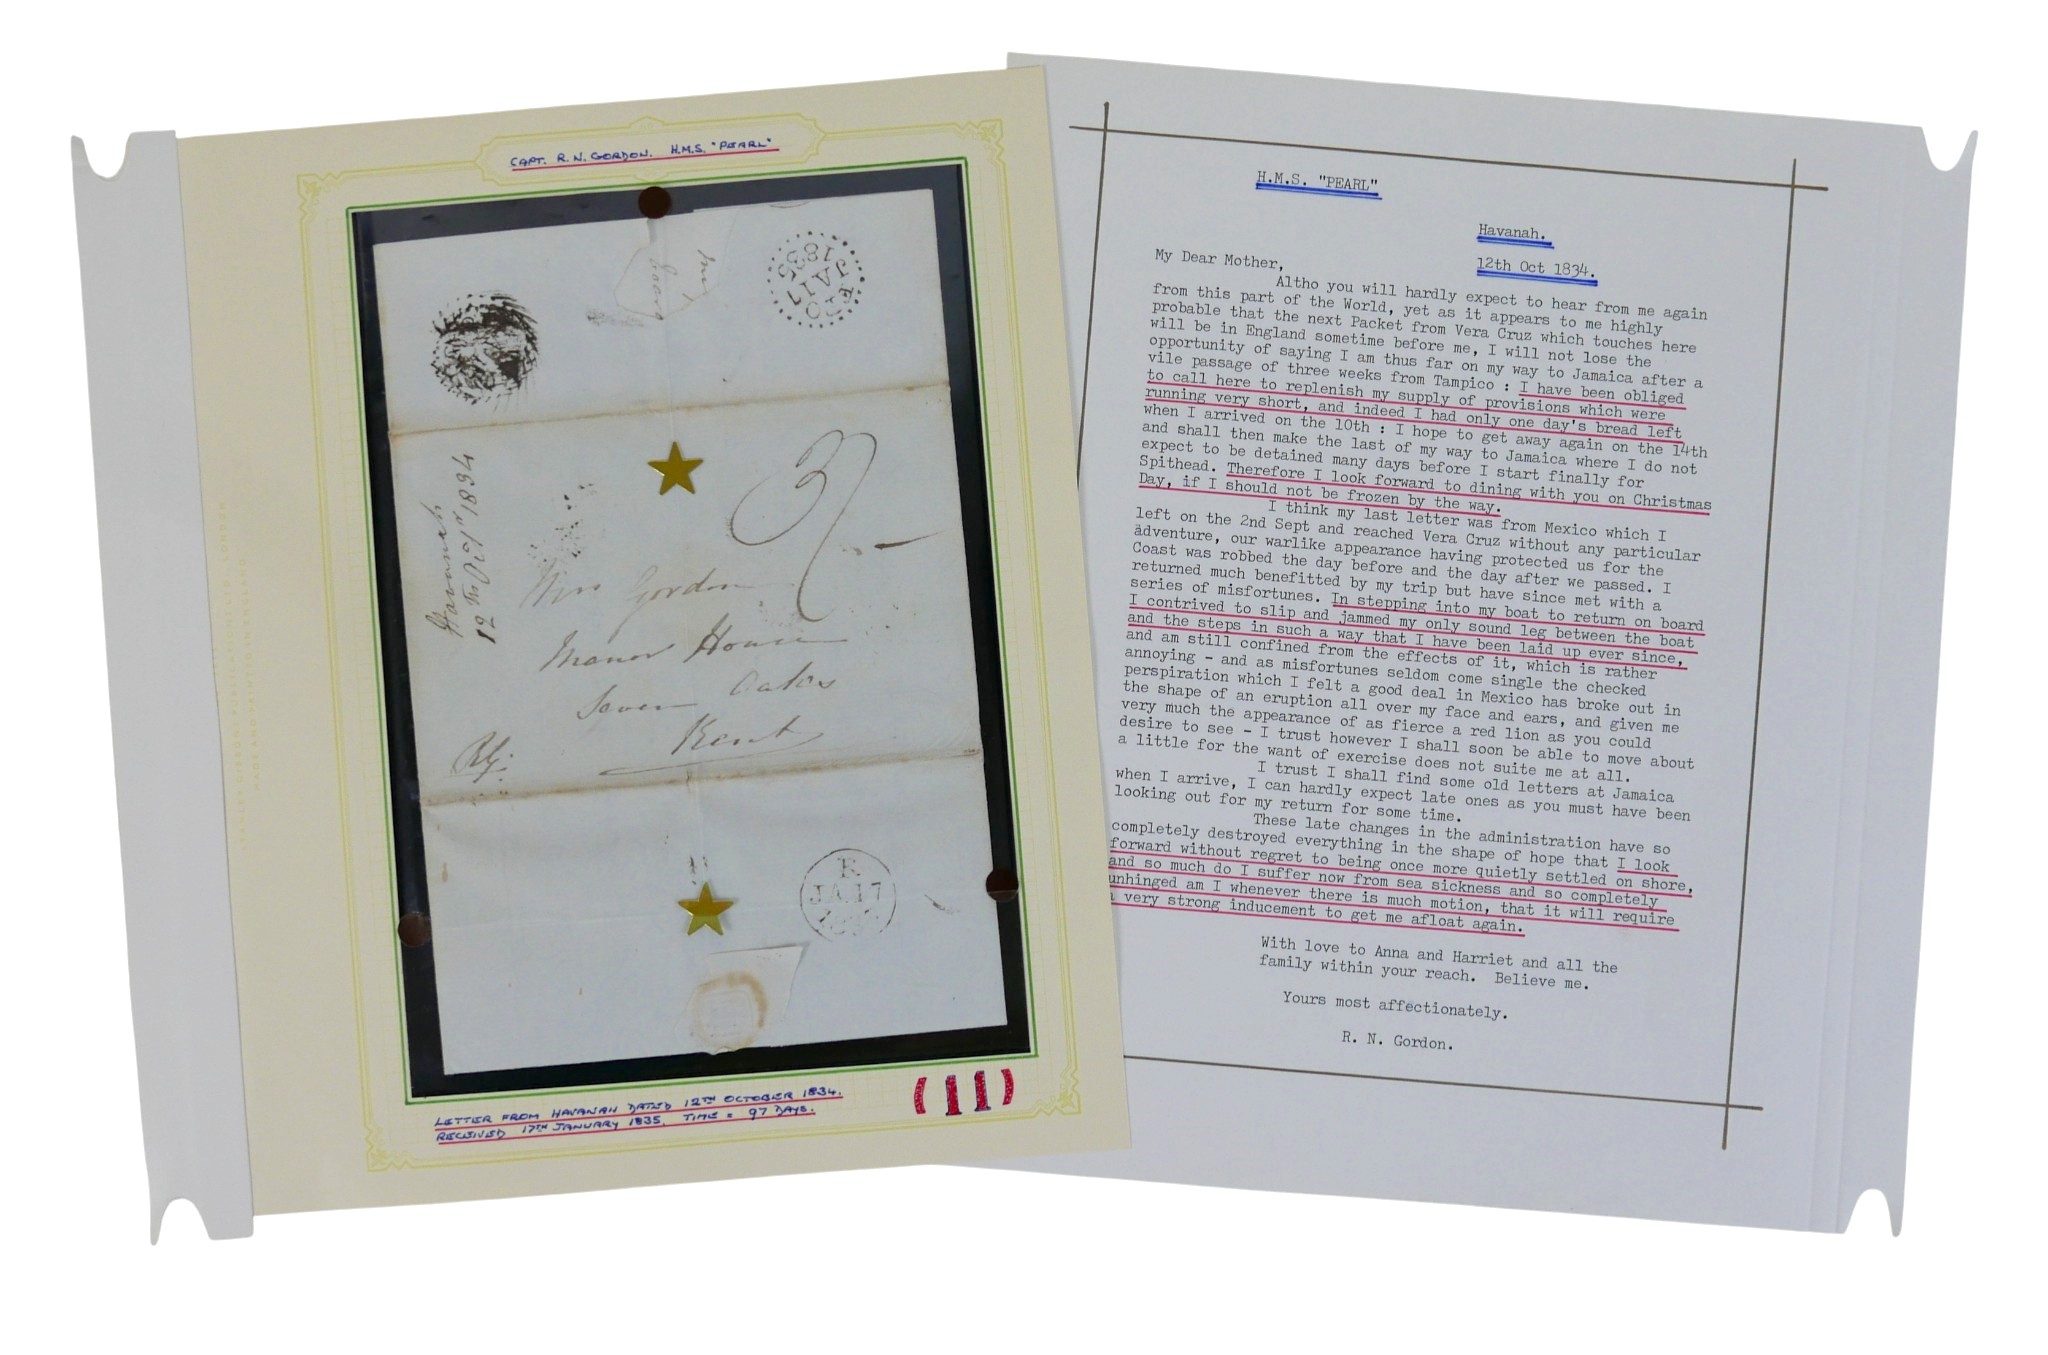 CAPT. R. N. GORDON. H.M.S. "PEARL"
1835
JA 17
Havanah
12th Octr 1834
Mrs Gordon
Manor House
Seven Oaks
Kent
JA 17
LETTER FROM HAVANAH DATED 12TH OCTOBER 1834.
RECEIVED 17TH JANUARY 1835. TIME = 97 DAYS.
(11)
H.M.S. "PEARL"
Havanah.
12th Oct 1834.
My Dear Mother,
Altho you will hardly expect to hear from me again
from this part of the World, yet as it appears to me highly
probable that the next Packet from Vera Cruz which touches here
will be in England sometime before me, I will not lose the
opportunity of saying I am thus far on my way to Jamaica after a
vile passage of three weeks from Tampico : I have been obliged
to call here to replenish my supply of provisions which were
running very short, and indeed I had only one day's bread left
when I arrived on the 10th : I hope to get away again on the 14th
and shall then make the last of my way to Jamaica where I do not
expect to be detained many days before I start finally for
Spithead. Therefore I look forward to dining with you on Christmas
Day, if I should not be frozen by the way.
I think my last letter was from Mexico which I
left on the 2nd Sept and reached Vera Cruz without any particular
adventure, our warlike appearance having protected us for the
Coast was robbed the day before and the day after we passed. I
returned much benefitted by my trip but have since met with a
series of misfortunes. In stepping into my boat to return on board
I contrived to slip and jammed my only sound leg between the boat
and the steps in such a way that I have been laid up ever since,
and am still confined from the effects of it, which is rather
annoying - and as misfortunes seldom come single the checked
perspiration which I felt a good deal in Mexico has broke out in
the shape of an eruption all over my face and ears, and given me
very much the appearance of as fierce a red lion as you could
desire to see - I trust however I shall soon be able to move about
a little for the want of exercise does not suite me at all.
I trust I shall find some old letters at Jamaica
when I arrive, I can hardly expect late ones as you must have been
looking out for my return for some time.
These late changes in the administration have so
completely destroyed everything in the shape of hope that I look
forward without regret to being once more quietly settled on shore,
and so much do I suffer now from sea sickness and so completely
unhinged am I whenever there is much motion, that it will require
a very strong inducement to get me afloat again.
With love to Anna and Harriet and all the
family within your reach. Believe me.
Yours most affectionately.
R. N. Gordon.